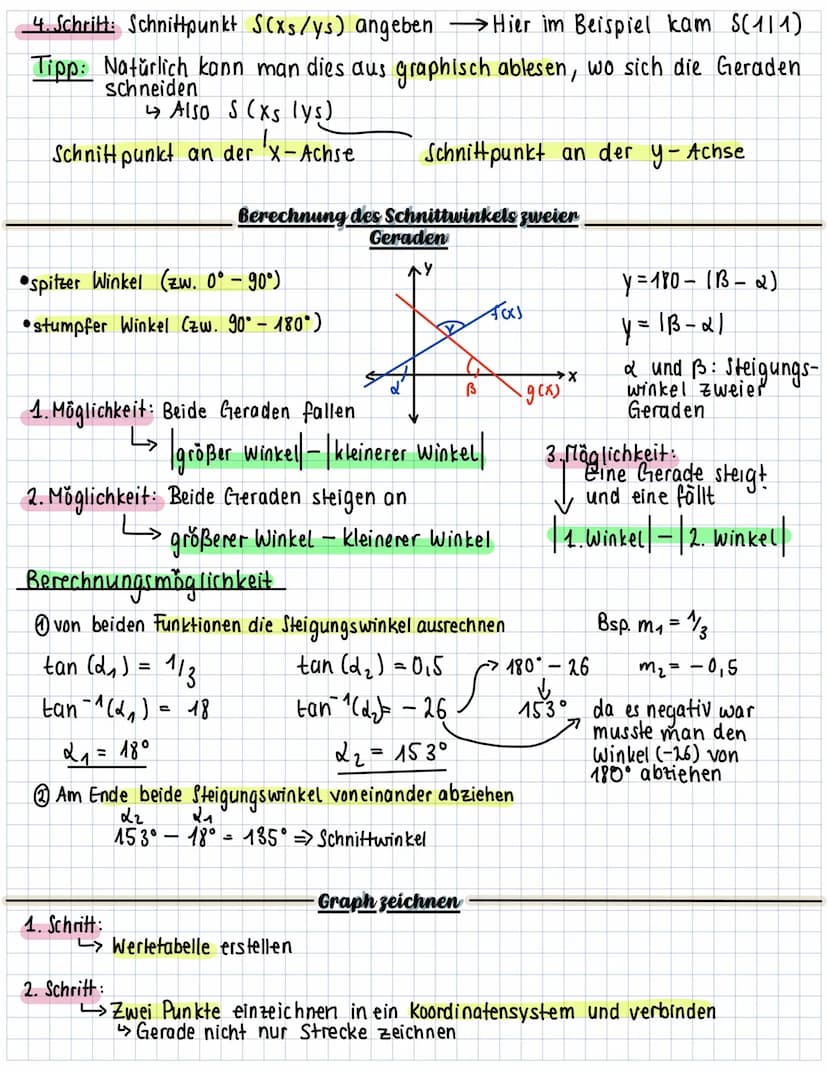 4. Schritt: Schnittpunkt S(xs/ys) angeben → Hier im Beispiel kam S(1|1)
Tipp: Natürlich kann man dies aus graphisch ablesen, wo sich die Geraden
schneiden
↳ Also S(xs|ys)
Schnittpunkt an der x-Achse Schnittpunkt an der y-Achse
Berechnung des Schnittwinkels zweier
Geraden
•spitzer Winkel (zw. 0° - 90°)
•stumpfer Winkel (zw. 90° - 180°)
y
f(x)
γ
x
α
β
g(x)
γ=180-(β-α)
γ=|β-α|
α und β: Steigungs-
winkel zweier
Geraden
1. Möglichkeit: Beide Geraden fallen
↳ |größer Winkel|-|kleinerer Winkel|
2. Möglichkeit: Beide Geraden steigen an
↳ größerer Winkel - kleinerer Winkel
3. Möglichkeit:
Eine Gerade steigt
und eine föllt
↓ |1. Winkel|-|2. Winkel|
Berechnungsmöglichkeit
① von beiden Funktionen die Steigungswinkel ausrechnen
Bsp. m₁ = 1/3
m₂ = -0,5
tan (α₁) = 1/3
tan⁻¹(α₁) = 18
α₁ = 18°
tan (α₂) = 0,5
tan⁻¹(α₂)= -26
α₂ = 153°
→ 180° - 26
↓
153°
da es negativ war
musste man den
Winkel (-26) von
180° abziehen
② Am Ende beide Steigungswinkel voneinander abziehen
α₂ α₁
153° - 18° = 135° ⇒ Schnittwinkel
Graph zeichnen
1. Schritt:
↳ Wertetabelle erstellen
2. Schritt:
↳ Zwei Punkte einzeichnen in ein Koordinatensystem und verbinden
↳ Gerade nicht nur Strecke zeichnen